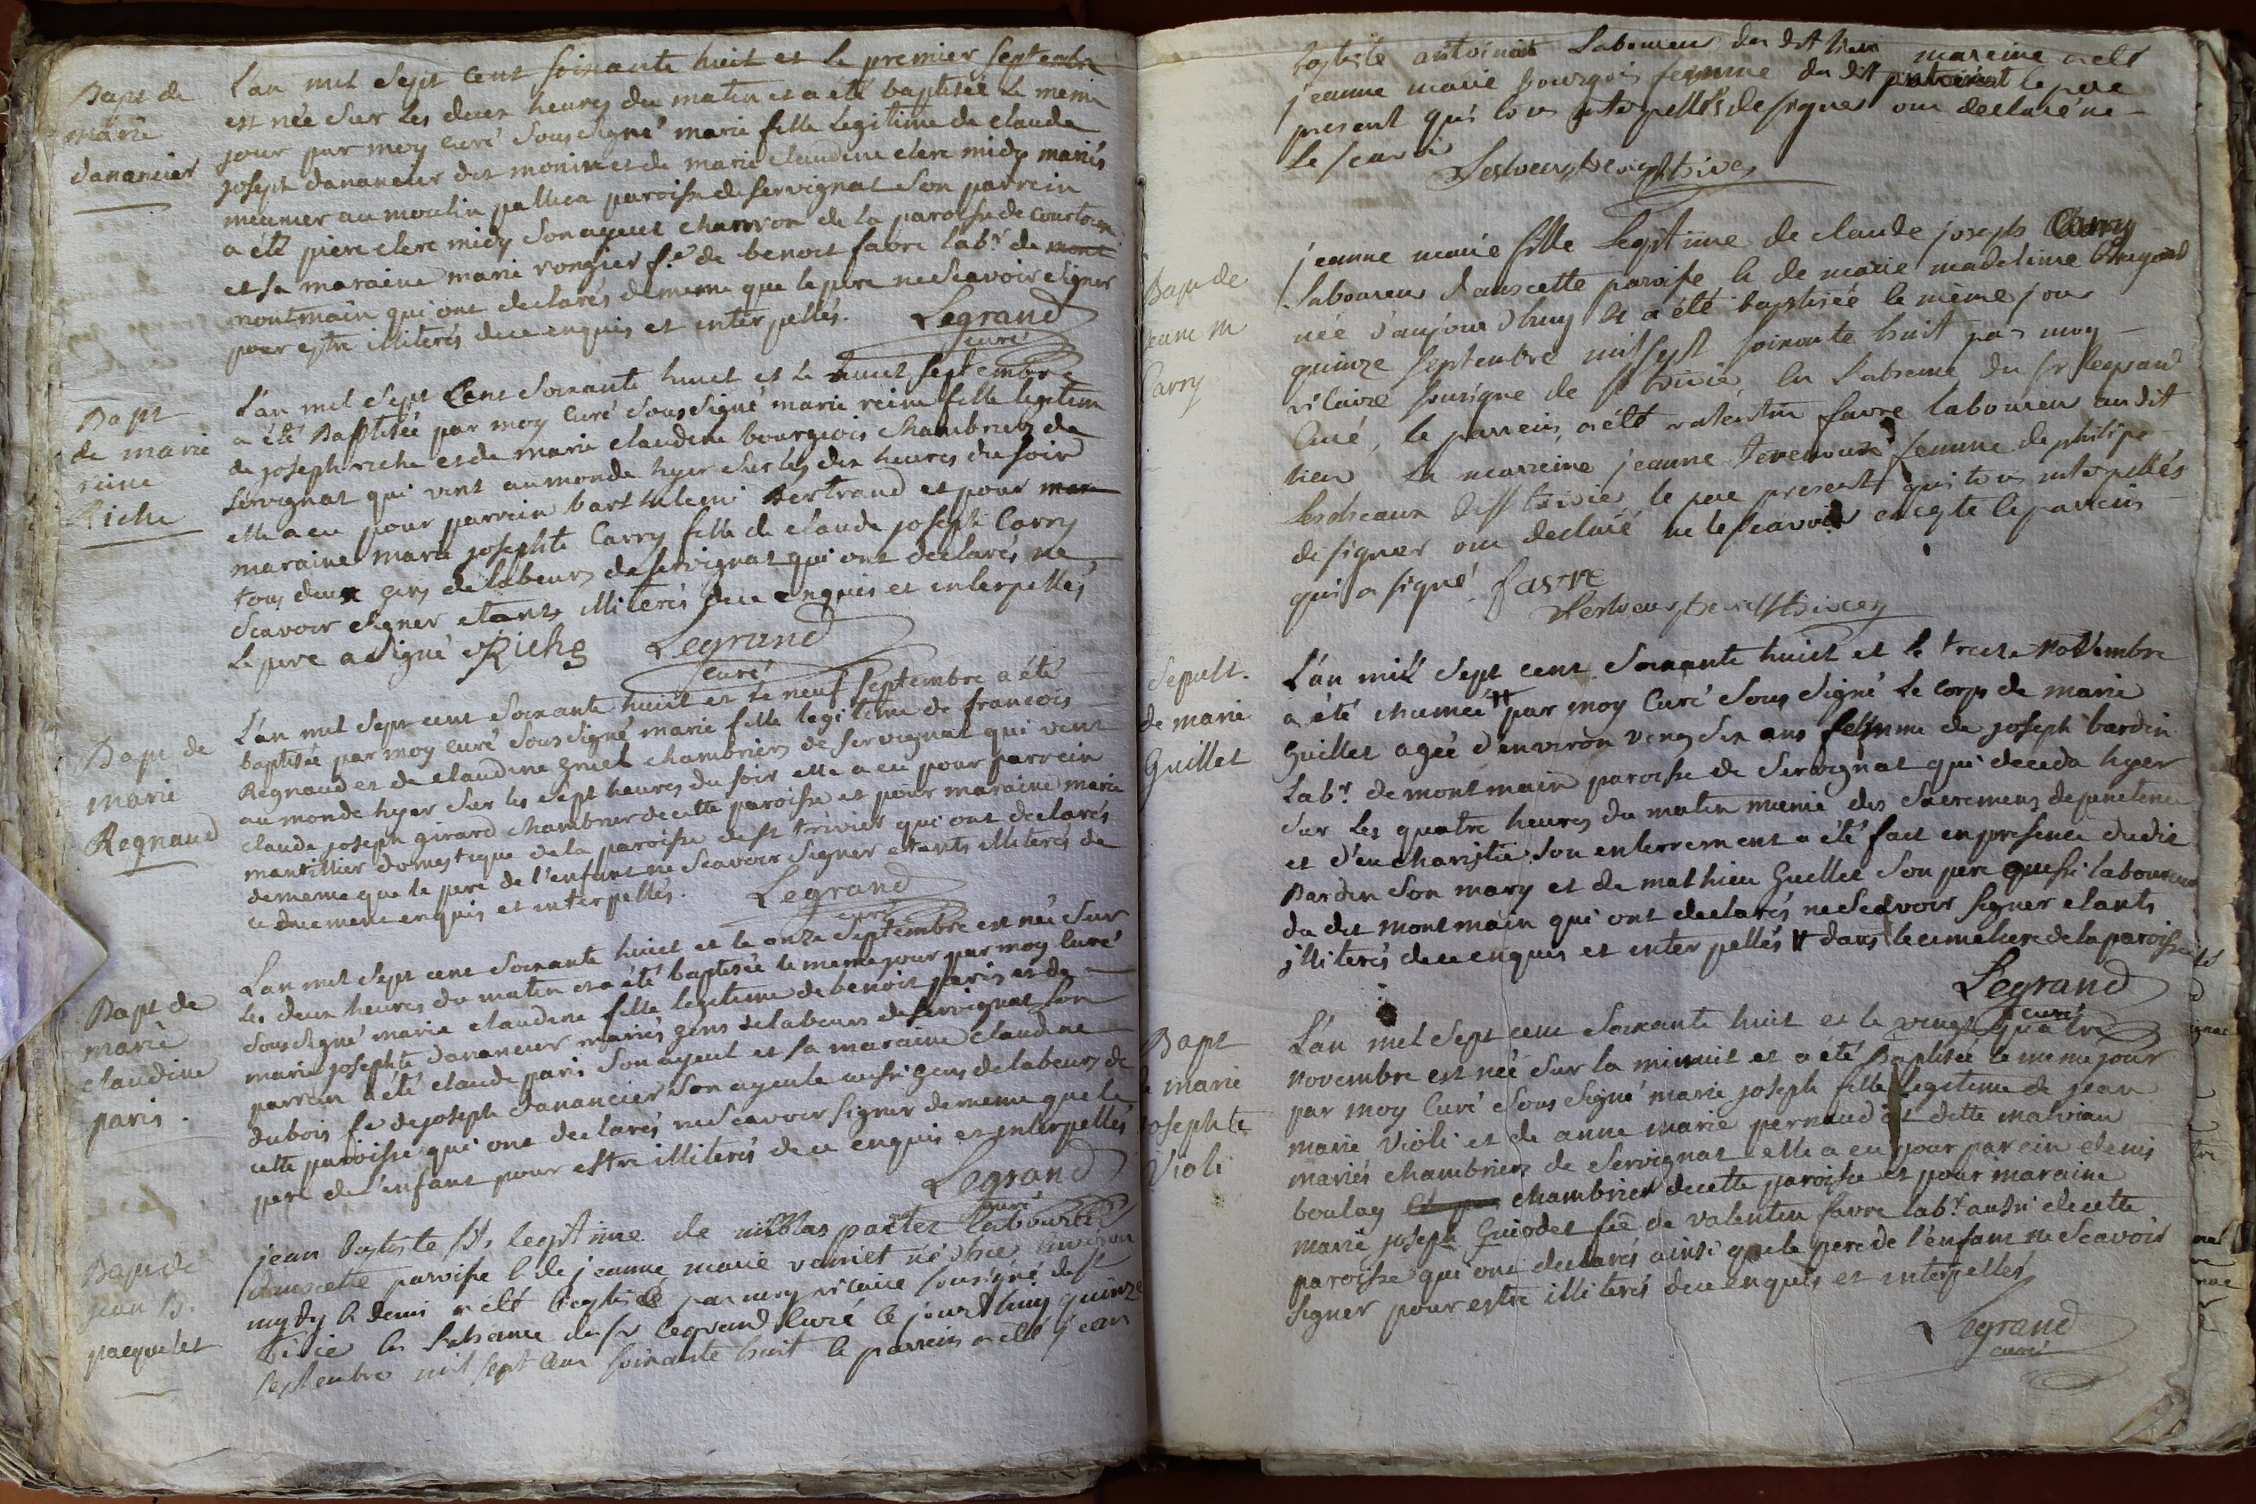 Bapt de
marie
danancier
L'an mil sept cent soixante huit et le premier septembre
est née sur les deux heures du matin et a été baptisée le meme
jour par moy curé sous signé marie fille legitime de claude
joseph danancier dit monin et de marie claudine clerc midy mariés
meunier au moulin pallien paroisse de servignat son parrein
a eté piere clerc midy son ayeul charron de la paroisse de courtoux
et sa maraine marie rongier fe de benoit favre labr de mont
montmain qui ont declarés de meme que le pere ne scavoir signer
pour estre illiterés de ce enquis et interpellés.
Legrand
curé
Bapt
de marie
reine
Riche
L'an mil sept Cent soixante huit et le huit septembre
a été Baptisée par moy curé sous signé marie reine fille legitime
de joseph riche et de marie claudine bourgeois chambriers de
servignat qui vint au monde hyer sur les dix heures du soir
elle a eu pour parrein barthelemi Bertrand et pour mar
maraine marie josephte Carry fille de claude joseph Carry
tous deux gens de labeurs de servignat qui ont declarés ne
scavoir signer etants illiterés de ce enquis et interpellés
le pere a signé Riche Legrand
curé
Bapt de
marie
Regnaud
L'an mil sept cent soixante huit et le neuf septembre a été
baptisée par moy curé sous signé marie fille legitime de francois
Regnaud et de claudine gruel chambriers de servignat qui vint
au monde hyer sur les sept heures du soir elle a eu pour parrein
claude joseph girard chambrier de cette paroisse et pour maraine marie
mantillier domestique de la paroisse de st trivier qui ont declarés
de meme que le pere de l'enfant ne scavoir signer etants illiterés de
ce duement enquis et interpellés.
Legrand
curé
Bapt de
marie
claudine
paris.
L'an mil sept cent soixante huit et le onze septembre est née sur
les deux heures du matin et a été baptisée le meme jour par moy curé
sous signé marie claudine fille legitime de benoit paris et de
marie josephte danancier mariés gens de labeurs de servignat son
parrein a été claude paris son ayeul et sa maraine claudine
dubois fe de joseph danancier son ayeule aussi gens de labeurs de
cette paroisse qui ont declarés ne scavoir signer de meme que le
pere de l'enfant pour estre illiterés de ce enquis et interpellés
Legrand
curé
Bapt de
jean B.
paquelet
jean baptiste fils legitime de nicolas laboureur
dans cette paroisse & de jeanne marie né hier environ
mydy & demi a eté baptisé par moy vicaire sousigné de st
trivié en l'absence du sr legrand curé ce jourdhuy quinze
septembre mil sept cent soixante huit le parrein a eté jean
baptiste antoinat laboureur du dit lieu mareine a eté
jeanne marie bourgois femme du dit le pere
present qui tous interpellés de signer ont declaré ne
le scavoir
Bapt de
jeanne M
Carry
jeanne marie fille legitime de claude joseph Carry
laboureur dans cette paroisse & de marie madeleine
née d'aujourdhuy & a été baptisée le même jour
quinze septembre mil sept soixante huit par moy
vicaire sousigné de st trivié en l'absence du sr legrand
curé, le parrein a été valentin favre laboureur audit
lieu la mareine jeanne femme de philipe
de st trivié le pere present qui tous interpellés
de signer ont declaré ne le scavoir excepté le parrein
qui a signé favre
Sepult.
de marie
Guillet
L'an mil sept cent soixante huit et le treize Novembre
a été inhumée # par moy Curé sous signé le corps de marie
Guillet agée d'environ vingt six ans femme de joseph bardin
labr. de montmain paroisse de Servignat qui deceda hyer
sur les quatre heures du matin munie des sacremens de penitence
et d'eucharistie son enterrement a été fait en presence dudit
Bardin son mary et de mathieu Guillet son pere aussi laboureur
du dit montmain qui ont declarés ne scavoir signer etants
illiterés de ce enquis et interpellés # dans le cimetiere de la paroisse
Legrand
curé
Bapt
de marie
josephte
Violi
L'an mil sept cent soixante huit et le vingt quatre
Novembre est née sur la minuit et a été Baptisée le meme jour
par moy Curé sous signé marie joseph fille legitime de jean
marie Violi et de anne marie pernaud dit dette malvian
mariés chambriers de Servignat elle a eu pour parrein denis
boulay chambrier de cette paroisse et pour maraine
marie joseph Guiodet fe de valentin favre labr. aussi de cette
paroisse qui ont declarés ainsi que le pere de l'enfant ne scavoir
signer pour estre illiterés de ce enquis et interpellés
Legrand
curé